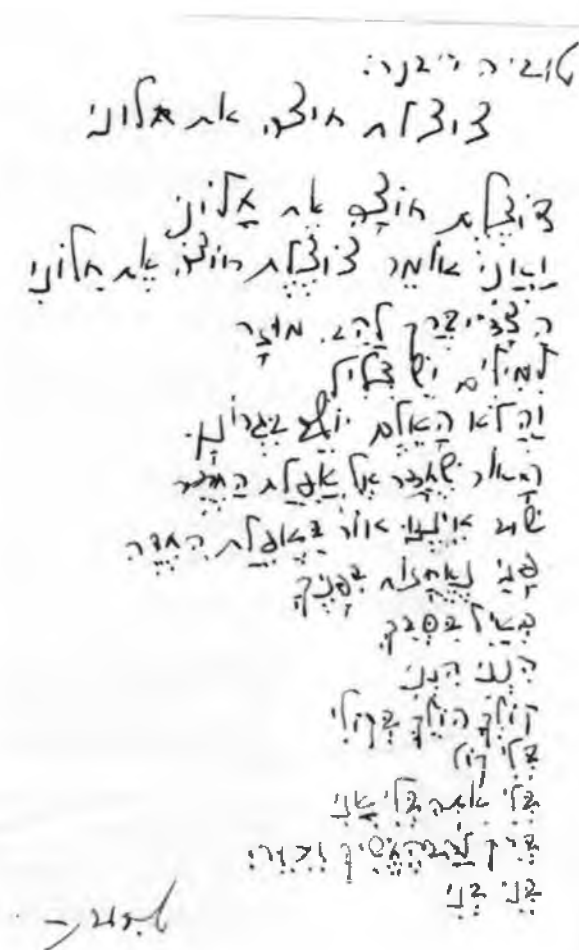 טוביה ריבנר:
צוצלת חוצה את חלוני
צוֹצֶלֶת חוֹצָה אֶת חַלּוֹנִי
וַאֲנִי אוֹמֵר צוֹצֶלֶת חוֹצָה אֶת חַלּוֹנִי
מוּזָר
לְמִלִּים יֵשׁ צְלִיל
וַהֲלֹא הָאִלֵּם יוֹשֵׁב בִּגְרוֹנָן.
הָאוֹר שֶׁחָדַר אֶל אֲפֵלַת הַחֶדֶר
שׁוּב אֵינֶנּוּ אוֹר בַּאֲפֵלַת הַחֶדֶר
פָּנַי נֶאֱחָזוֹת בְּפָנֶיךָ
כְּאַיִל בַּסְּבַךְ
הִנְנִי הִנְנִי
קוֹלְךָ הוֹלֵךְ בְּקוֹלִי
בְּלִי קוֹל
בְּלִי אַתָּה בְּלִי אֲנִי
בְּנִי בְּנִי